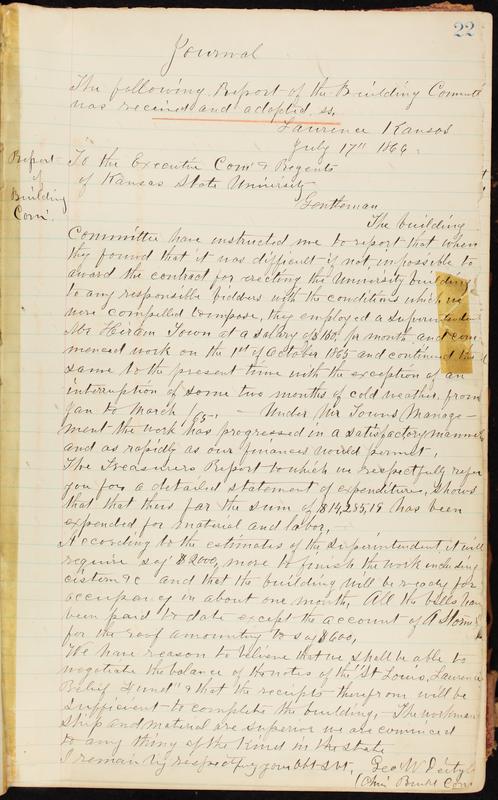 22
Journal
The following Report of the Building Committ
was received and adopted, ss.
Lawrence Kansas
July 17" 1866
Report of Building Com'.
To the Executive Com' & Regents
of Kansas State University
Gentlemen
The building
Committee have instructed me to report that when
they found that it was difficult if not, impossible to
award the contract for erecting the University building
to any responsible bidders with the conditions which we
were compelled to impose, they employed a Superintendent
Mr Hiram Town at a salary of $150. per month, and com
menced work on the 1st of October 1865 and continued the
same to the present time with the exception of an
interruption of some two months of cold weather, from
Jan to March /65- - Under Mr Towns Manage-
ment the work has progressed in a satisfactory manner
and as rapidly as our finances would permit,
The Treasurers Report to which we respectfully refer
you for a detailed statement of expenditures, shows
that that thus far the sum of $14,255,19 has been
expended for material and labor,-
According to the estimates of the Superintendent it will
require say $2000, more to finish the work including
cistern &c and that the building will be ready for
occupancy in about one month, All the bills have
been paid to date except the account of A Storm
for the roof amounting to say $600,
We have reason to believe that we shall be able to
negotiate the balance of the notes of the "St Louis, Lawrence
Relief Fund" & that the receipts therefrom will be
sufficient to complete the building, - The workman
ship and material are superior we are convinced
to any thing of the kind in the state
I remain Vy respectfuly your Obt Svt,
Geo W Deitzler
Chn' Build Com